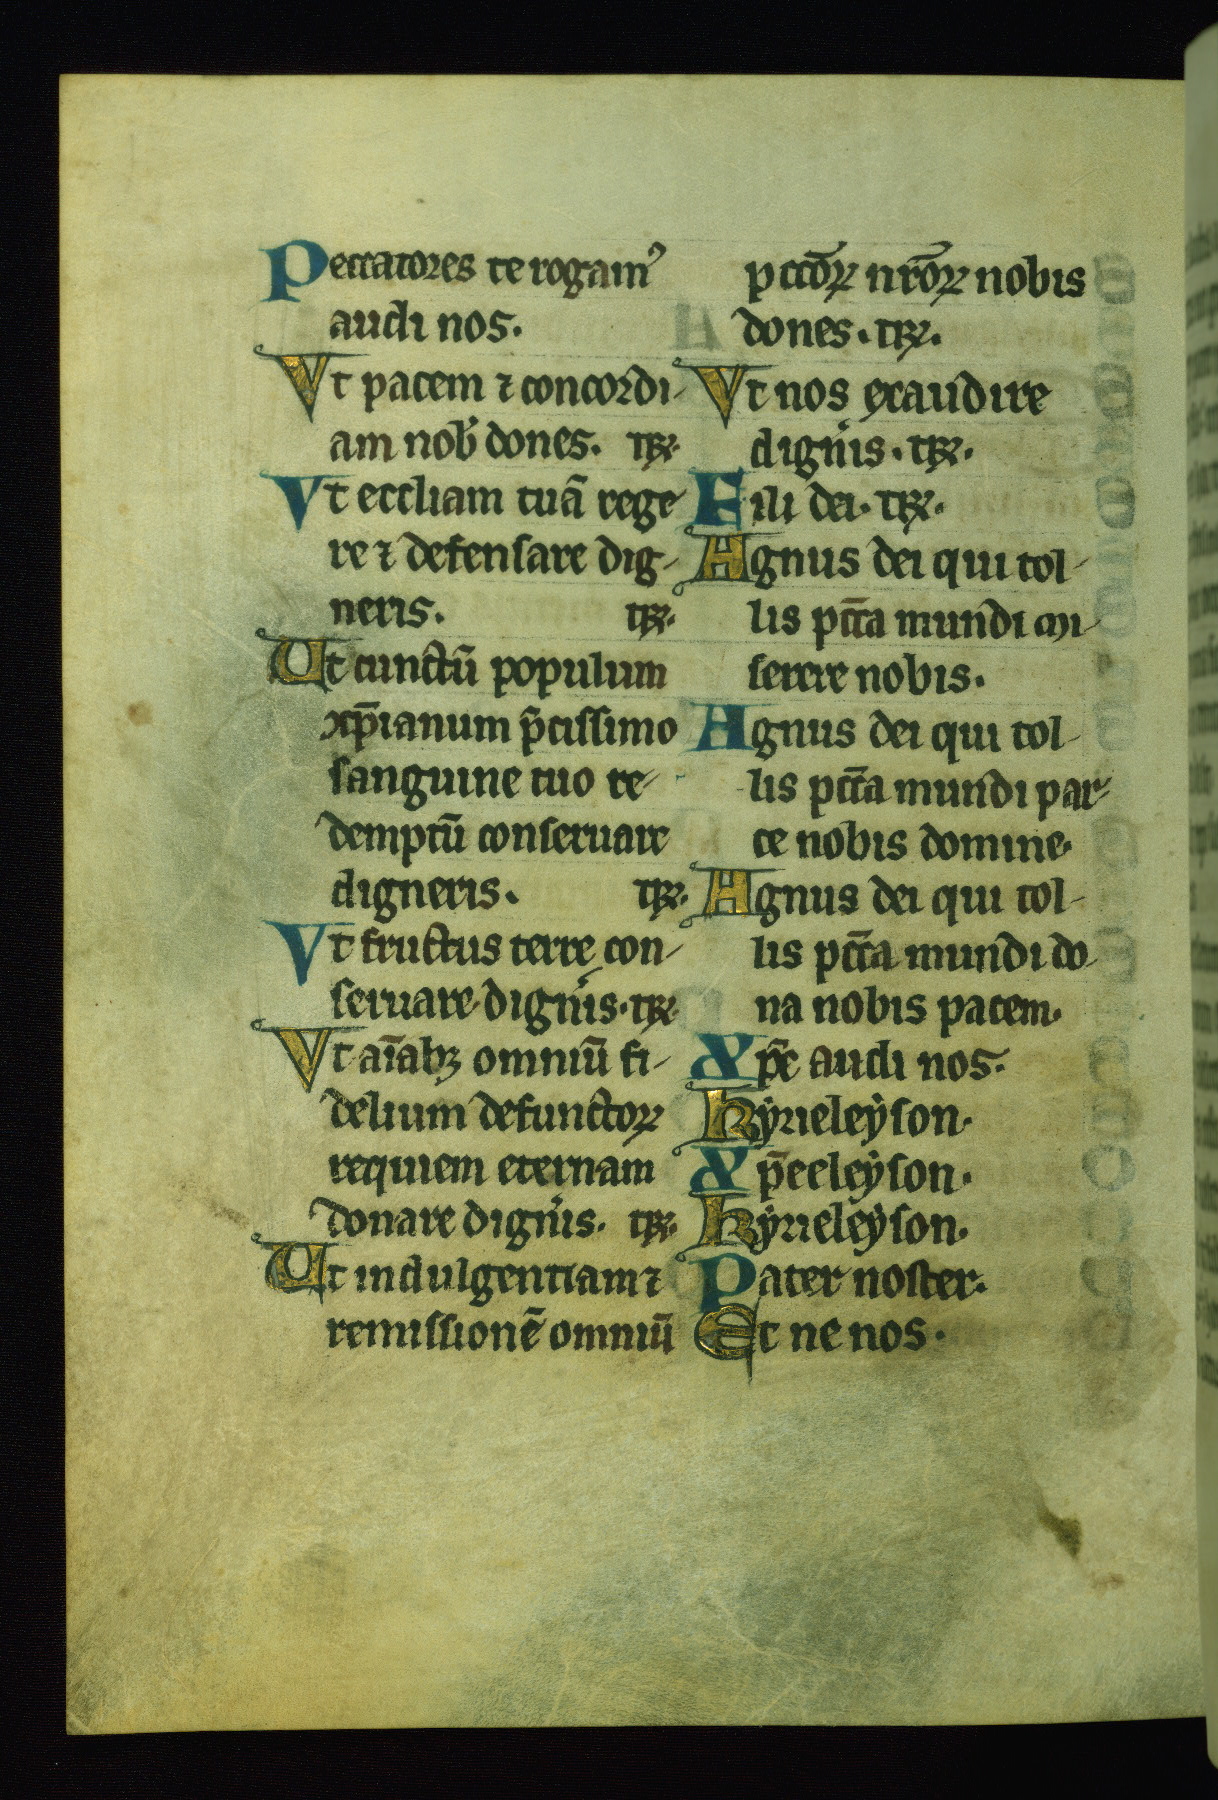 Peccatores te rogam᾿
audi nos.
Vt pacem ⁊ concordi-
am nob̾ dones. tꝶ.
Vt eccliam tuā rege-
re ⁊ defensare dig-
neris. tꝶ.
Ut cunctū populum
xp̄ianum p̄cissimo
sanguine tuo re-
demptū conseruare
digneris. tꝶ.
Vt fructus terre con-
seruare dign̾is. tꝶ.
Vt aīabꝫ omniū fi-
delium defunctoꝝ
requiem eternam
donare dign̾is. tꝶ.
Ut indulgentiam ⁊
remissionē omniū
pccōꝝ nrōꝝ nobis
dones. tꝶ.
Vt nos exaudire
dign̾is. tꝶ.
Fili dei. tꝶ.
Agnus dei qui tol-
lis pcc̄a mundi mi-
serere nobis.
Agnus dei qui tol-
lis pcc̄a mundi par-
ce nobis domine.
Agnus dei qui tol-
lis pcc̄a mundi do-
na nobis pacem.
Xp̄c audi nos.
Kẏrieleẏson.
Xp̄eeleẏson.
Kẏrieleẏson.
Pater noster.
Et ne nos.